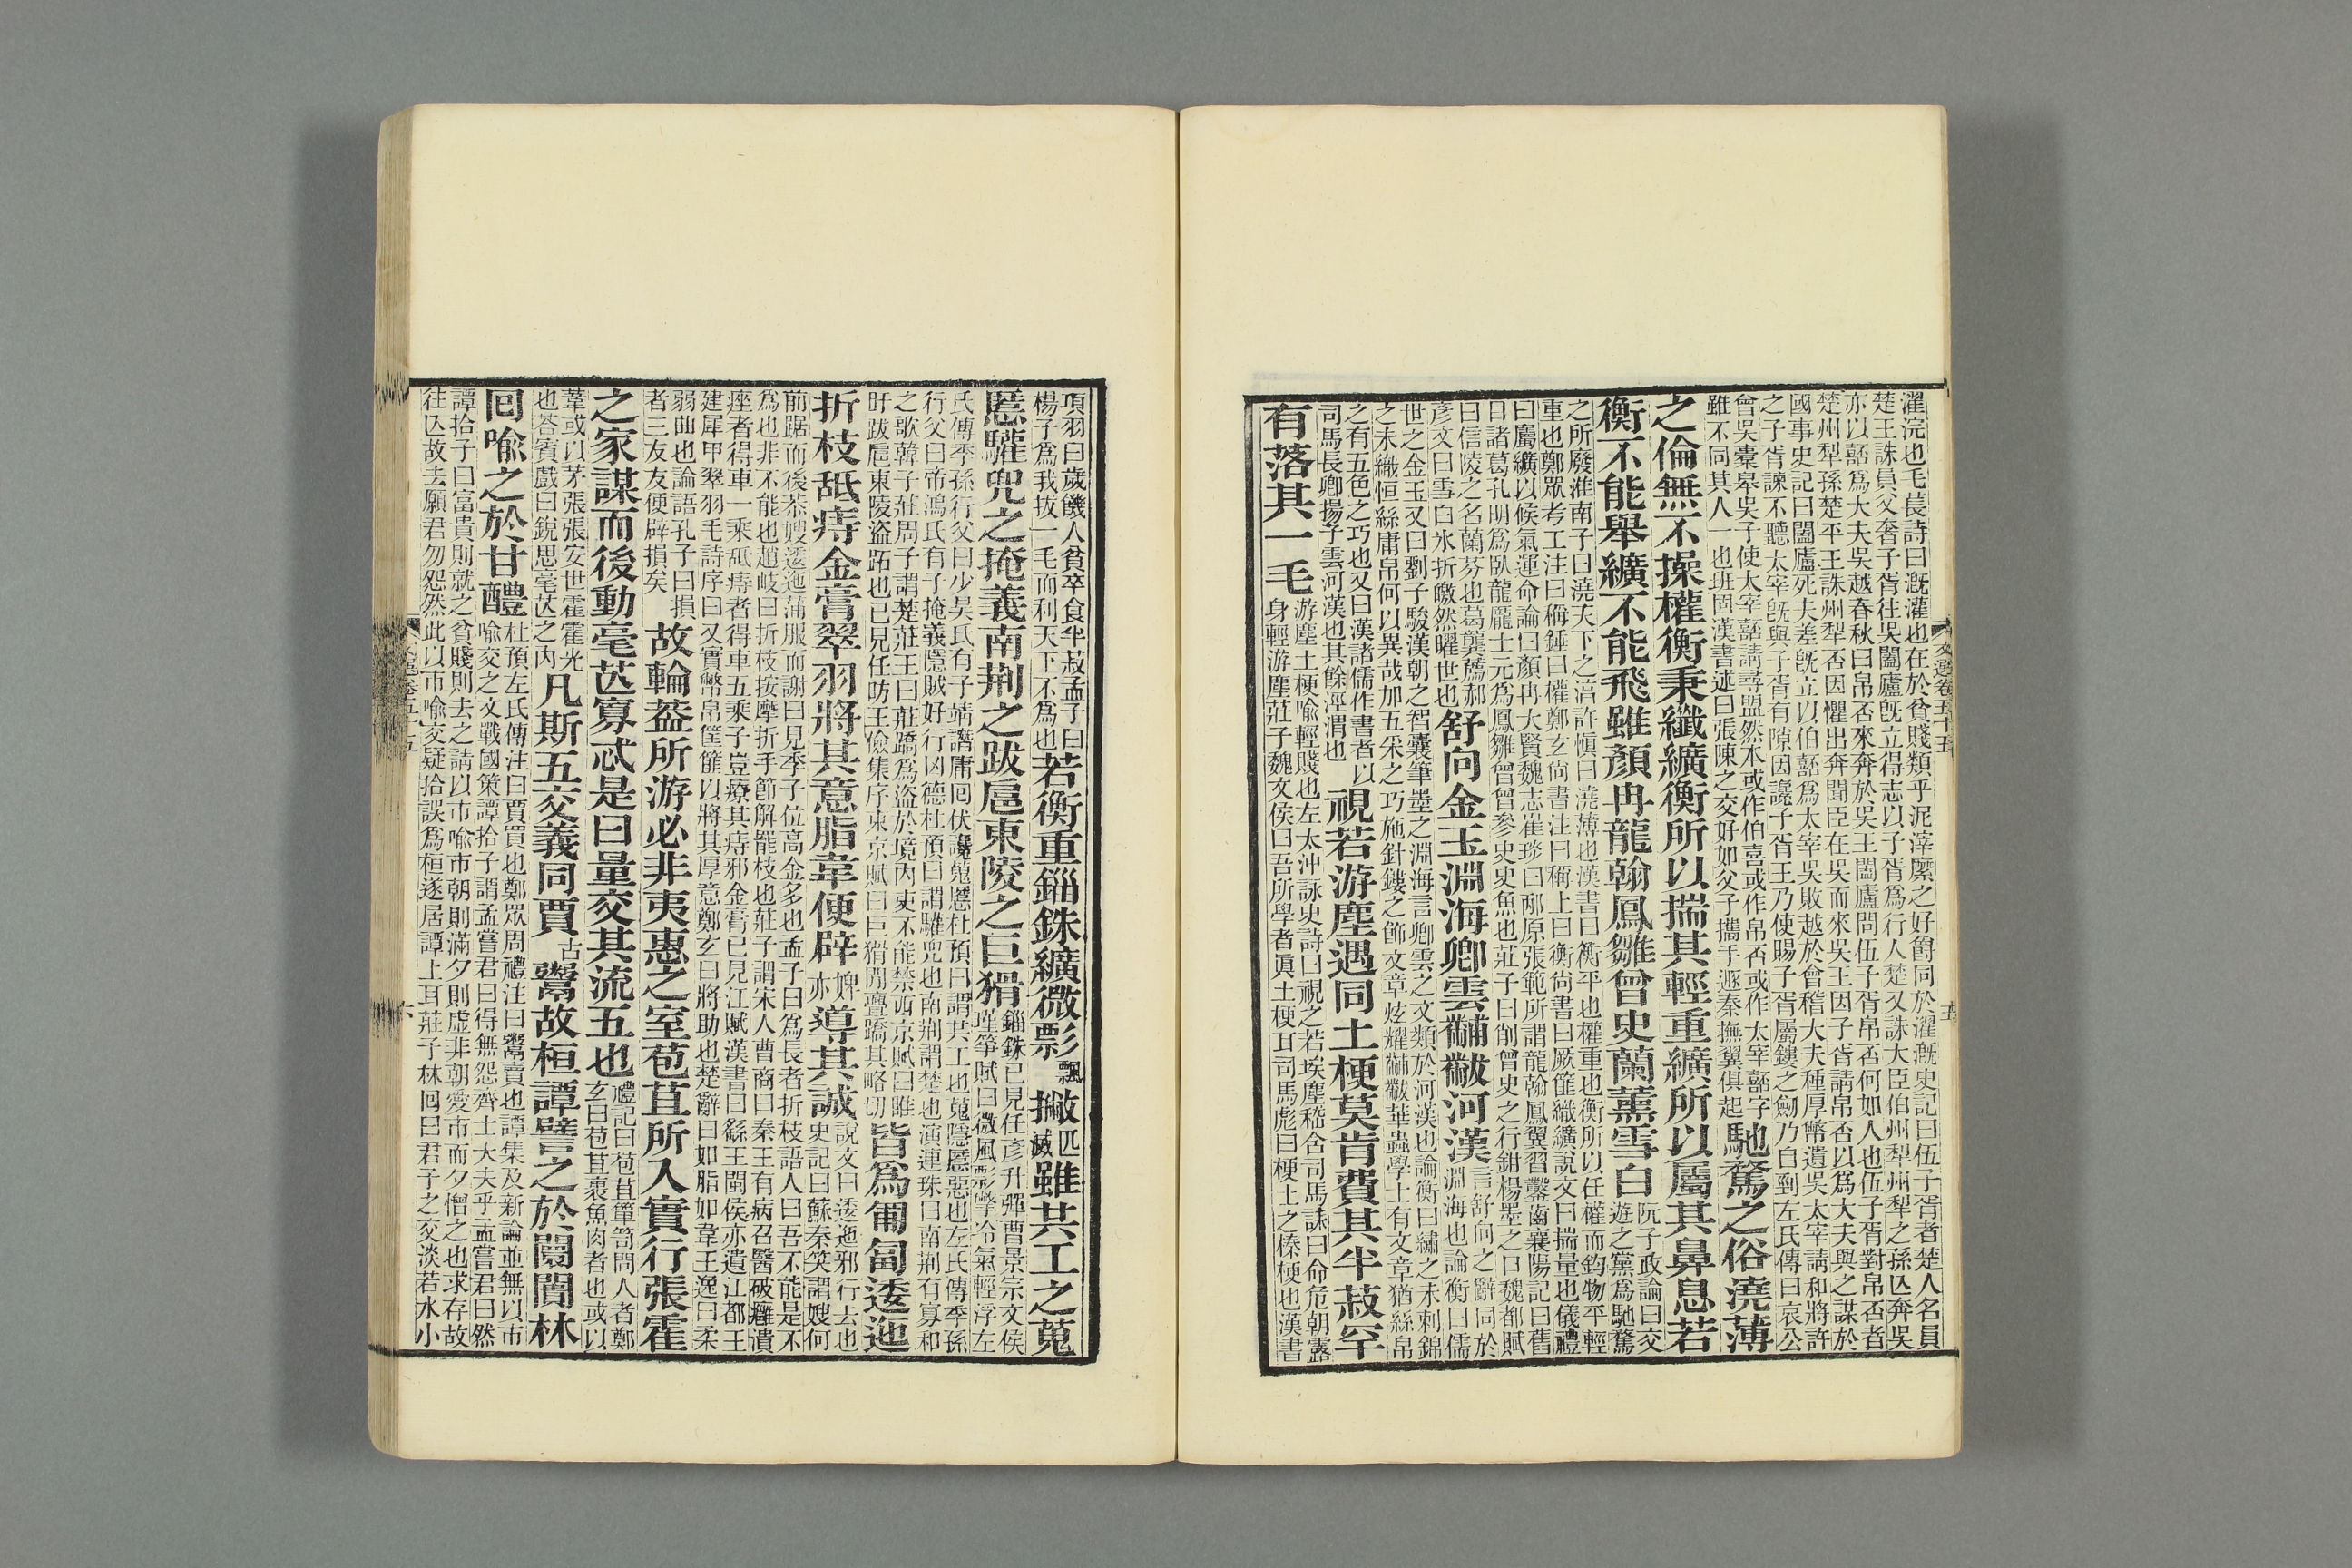 文選卷五十五
五
濯浣也毛萇詩曰漑灌也在於貧賤類乎泥滓縻之好爵同於濯漑史記曰伍子胥者楚人名員
楚王誅員父奢子胥往吳闔廬旣立得志以子胥爲行人楚又誅大臣伯州犂州犂之孫亾奔吳
亦以嚭爲大夫吳越春秋曰帛否來奔於吳王闔廬問伍子胥帛否何如人也伍子胥對帛否者
楚州犂孫楚平王誅州犂否因懼出奔聞臣在吳而來吳王因子胥請帛否以爲大夫與之謀於
國事史記曰闔廬死夫差旣立以伯嚭爲太宰吳敗越於會稽大夫種厚幣遺吳太宰請和將許
之子胥諫不聽太宰旣與子胥有隙因讒子胥王乃使賜子胥屬鏤之劒乃自剄左氏傳曰哀公
會吳橐皋吳子使太宰嚭請尋盟然本或作伯喜或作帛否或作太宰嚭字
雖不同其人一也班固漢書述曰張陳之交好如父子攜手遯秦撫翼俱起
馳騖之俗澆薄
之倫無不操權衡秉纖纊衡所以揣其輕重纊所以屬其鼻息若
衡不能舉纊不能飛雖顏冉龍翰鳳雛曾史蘭薰雪白
阮子政論曰交
遊之黨爲馳騖
之所廢淮南子曰澆天下之淳許愼曰澆薄也漢書曰衡平也權重也衡所以任權而鈞物平輕
重也鄭眾考工注曰稱錘曰權鄭玄尙書注曰稱上曰衡尙書曰厥篚纖纊說文曰揣量也儀禮
曰屬纊以候氣運命論曰顏冉大賢魏志崔琰曰邴原張範所謂龍翰鳳翼習鑿齒襄陽記曰舊
目諸葛孔明爲臥龍龐士元爲鳳雛曾曾參史史魚也莊子曰削曾史之行鉗楊墨之口魏都賦
曰信陵之名蘭芬也葛龔薦郝
彥文曰雪白氷折皦然曜世也
舒向金玉淵海卿雲黼黻河漢
言舒向之辭同於
淵海也論衡曰儒
世之金玉又曰劉子駿漢朝之智囊筆墨之淵海言卿雲之文類於河漢也論衡曰繡之未刺錦
之未織恒絲庸帛何以異哉加五采之巧施針鏤之飾文章炫耀黼黻華蟲學士有文章猶絲帛
之有五色之巧也又曰漢諸儒作書者以
司馬長卿揚子雲河漢也其餘涇渭也
視若游塵遇同土梗莫肯費其半菽罕
有落其一毛
游塵土梗喻輕賤也左太沖詠史詩曰視之若埃塵嵇含司馬誄曰命危朝露
身輕游塵莊子魏文侯曰吾所學者眞土梗耳司馬彪曰梗土之榛梗也漢書
項羽曰歲饑人貧卒食半菽孟子曰
楊子爲我拔一毛而利天下不爲也
若衡重錙銖纊微彯
飄
撇
匹
滅
雖共工之蒐
慝驩兜之掩義南荆之跋扈東陵之巨猾
錙銖已見任彥升彈曹景宗文侯
瑾筝賦曰微風彯擊冷氣輕浮左
氏傳季孫行父曰少昊氏有子靖譖庸回伏讒蒐慝杜預曰謂共工也蒐隱慝惡也左氏傳季孫
行父曰帝鴻氏有子掩義隱賊好行凶德杜預曰謂驩兜也南荆謂楚也演連珠曰南荆有寡和
之歌韓子莊周子謂楚莊王曰莊蹻爲盜於境內吏不能禁西京賦曰睢
盱跋扈東陵盜跖也已見任昉王儉集序東京賦曰巨猾閒亹蹻其略切
皆爲匍匐逶迤
折枝舐痔金膏翠羽將其意脂韋便辟
婢
亦
導其誠
說文曰逶迤邪行去也
史記曰蘇秦笑謂嫂何
前踞而後恭嫂逶迤蒲服而謝曰見季子位高金多也孟子曰爲長者折枝語人曰吾不能是不
爲也非不能也趙岐曰折枝按摩折手節解罷枝也莊子謂宋人曹商曰秦王有病召醫破癰潰
痤者得車一乘舐痔者得車五乘子豈療其痔邪金膏已見江賦漢書曰繇王閩侯亦遺江都王
建犀甲翠羽毛詩序曰又實幣帛筐篚以將其厚意鄭玄曰將助也楚辭曰如脂如韋王逸曰柔
弱曲也論語孔子曰損
者三友友便辟損矣
故輪葢所游必非夷惠之室苞苴所入實行張霍
之家謀而後動毫芒寡忒是曰量交其流五也
禮記曰苞苴簞笥問人者鄭
玄曰苞苴裹魚肉者也或以
葦或以茅張張安世霍霍光
也荅賓戲曰銳思毫芒之內
凡斯五交義同賈
古
鬻故桓譚譬之於闤闠林
回喻之於甘醴
杜預左氏傳注曰賈買也鄭眾周禮注曰鬻賣也譚集及新論並無以市
喻交之文戰國策譚拾子謂孟嘗君曰得無怨齊士大夫乎孟嘗君曰然
譚拾子曰富貴則就之貧賤則去之請以市喻市朝則滿夕則虛非朝愛市而夕憎之也求存故
往亾故去願君勿怨然此以市喻交疑拾誤爲桓遂居譚上耳莊子林回曰君子之交淡若水小
六